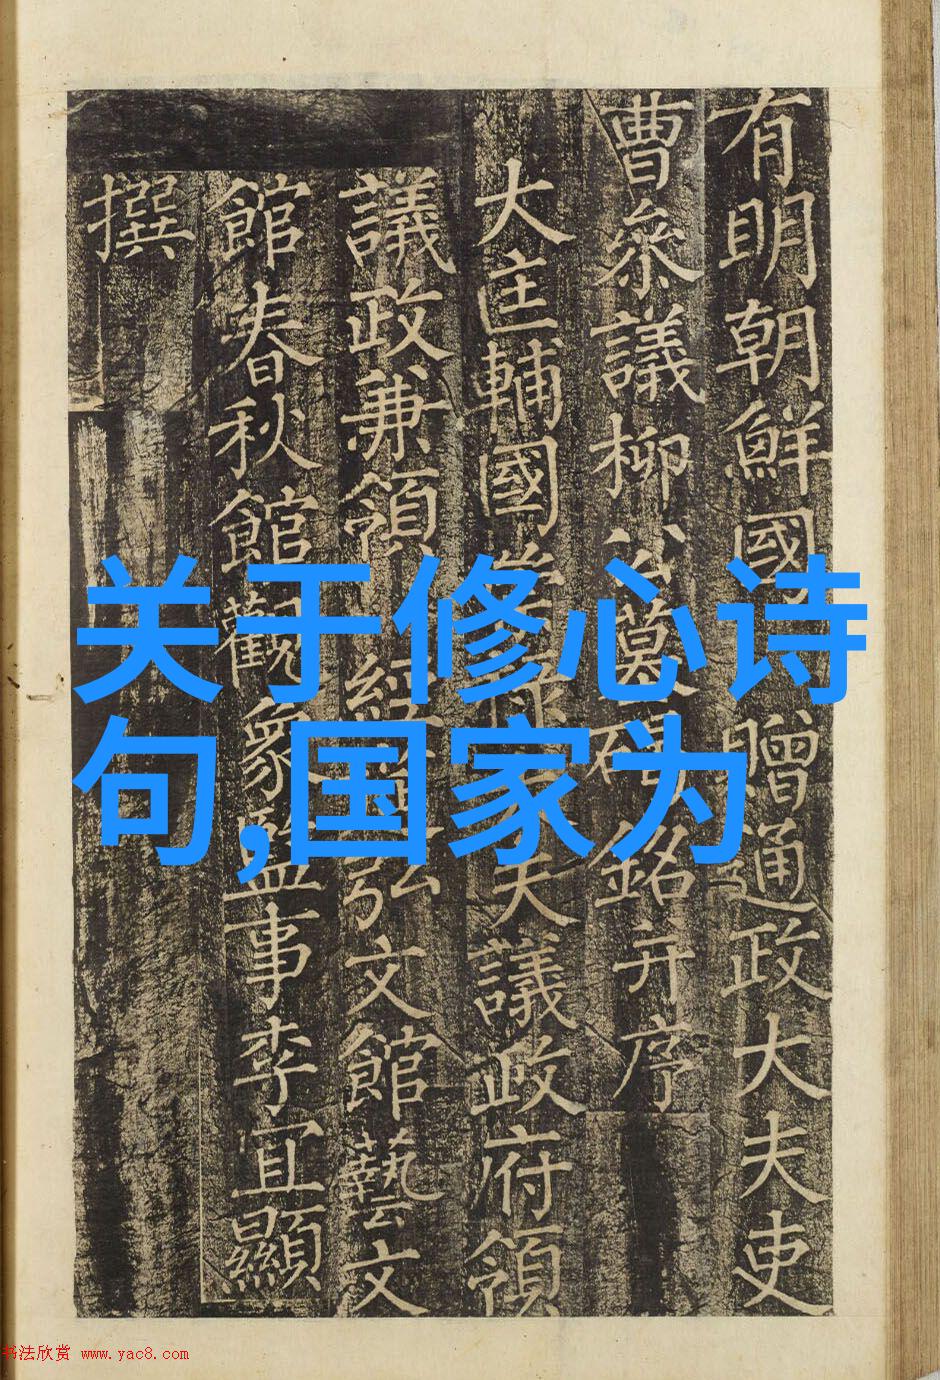 有明朝鮮國贈通政大夫吏
曹叅議柳公墓碣銘并序
大匡輔國崇祿大夫議政府領
議政兼領經筵弘文館藝文
館春秋館觀象監事李宜顯
撰
关于修心诗
句,国家为
书法欣赏 www.yac8.com